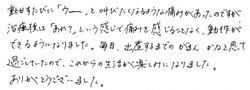 動かすたびに「ウー、と叫びたくなるような痛みがあったのですが
治療後は「あれ?」という感じで痛みを感じることなく、動作が
できるようになりました。毎日、出産するまでのがまん かなと思って
過ごしていたので、これからの生活が楽しみになりました。
ありがとうございました。